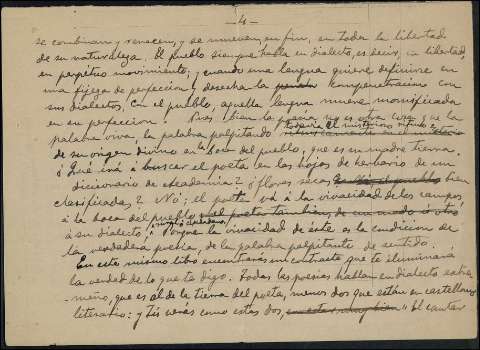 — 4 —
se combinan y renacen, y se mueven, en fin, en toda la libertad
de su naturaleza. El pueblo siempre habla en dialecto, es decir, en libertad,
en perpétuo movimiento; y cuando una lengua quiere definirse en
una fijeza de perfección y desecha la kompenetración con
sus dialectos, con el pueblo, aquella lengua muere momificada
en su perfección. Pues bien la poesía no es otra cosa que la
palabra viva, la palabra palpitando todavía el misterio
de su origen divino en la boca del pueblo, que es su madre tierra.
¿Qué irá á buscar el poeta en las hojas de herbario de un
diccionario de Academia? ¿flores secas bien
clasificadas? No; el poeta vá á la vivacidad de los campos
á la boca del pueblo
á su dialecto; Porque la vivacidad de éste es la condición de
la verdadera poesía, de la palabra palpitante de sentido.
En este mismo libro encontrarás un contraste que te iluminará
la verdad de lo que te digo. Todas las poesías hablan en dialecto extre-
meño, que es al de la tierra del poeta, menos dos que están en castellano
literario: y tú verás como estas dos, "El cantar